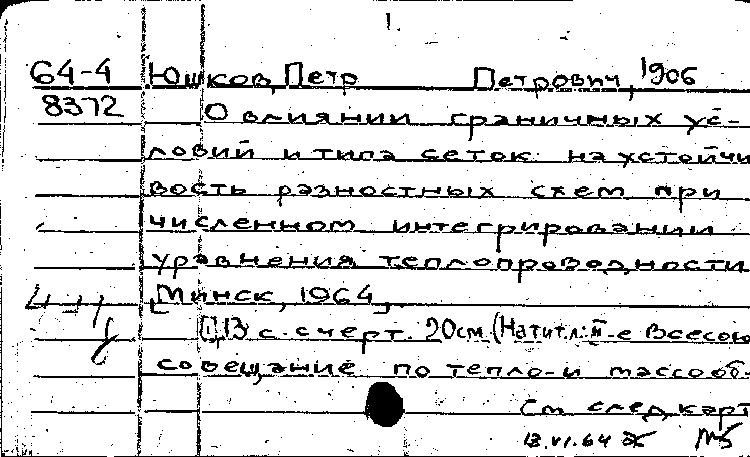 1.
64-4 Юшков, Петр Петрович, 1906
8372 О влиянии граничных ус-
ловий и типа сеток на устойчи
вость разностных схем при
численном интегрировании
уравнения теплопроводности
[Минск, 1964]
13 с. с черт. 20 см. (На тит. л.: -е Всесою
совещание по тепло- и массооб-
См след карт
12.VI.64